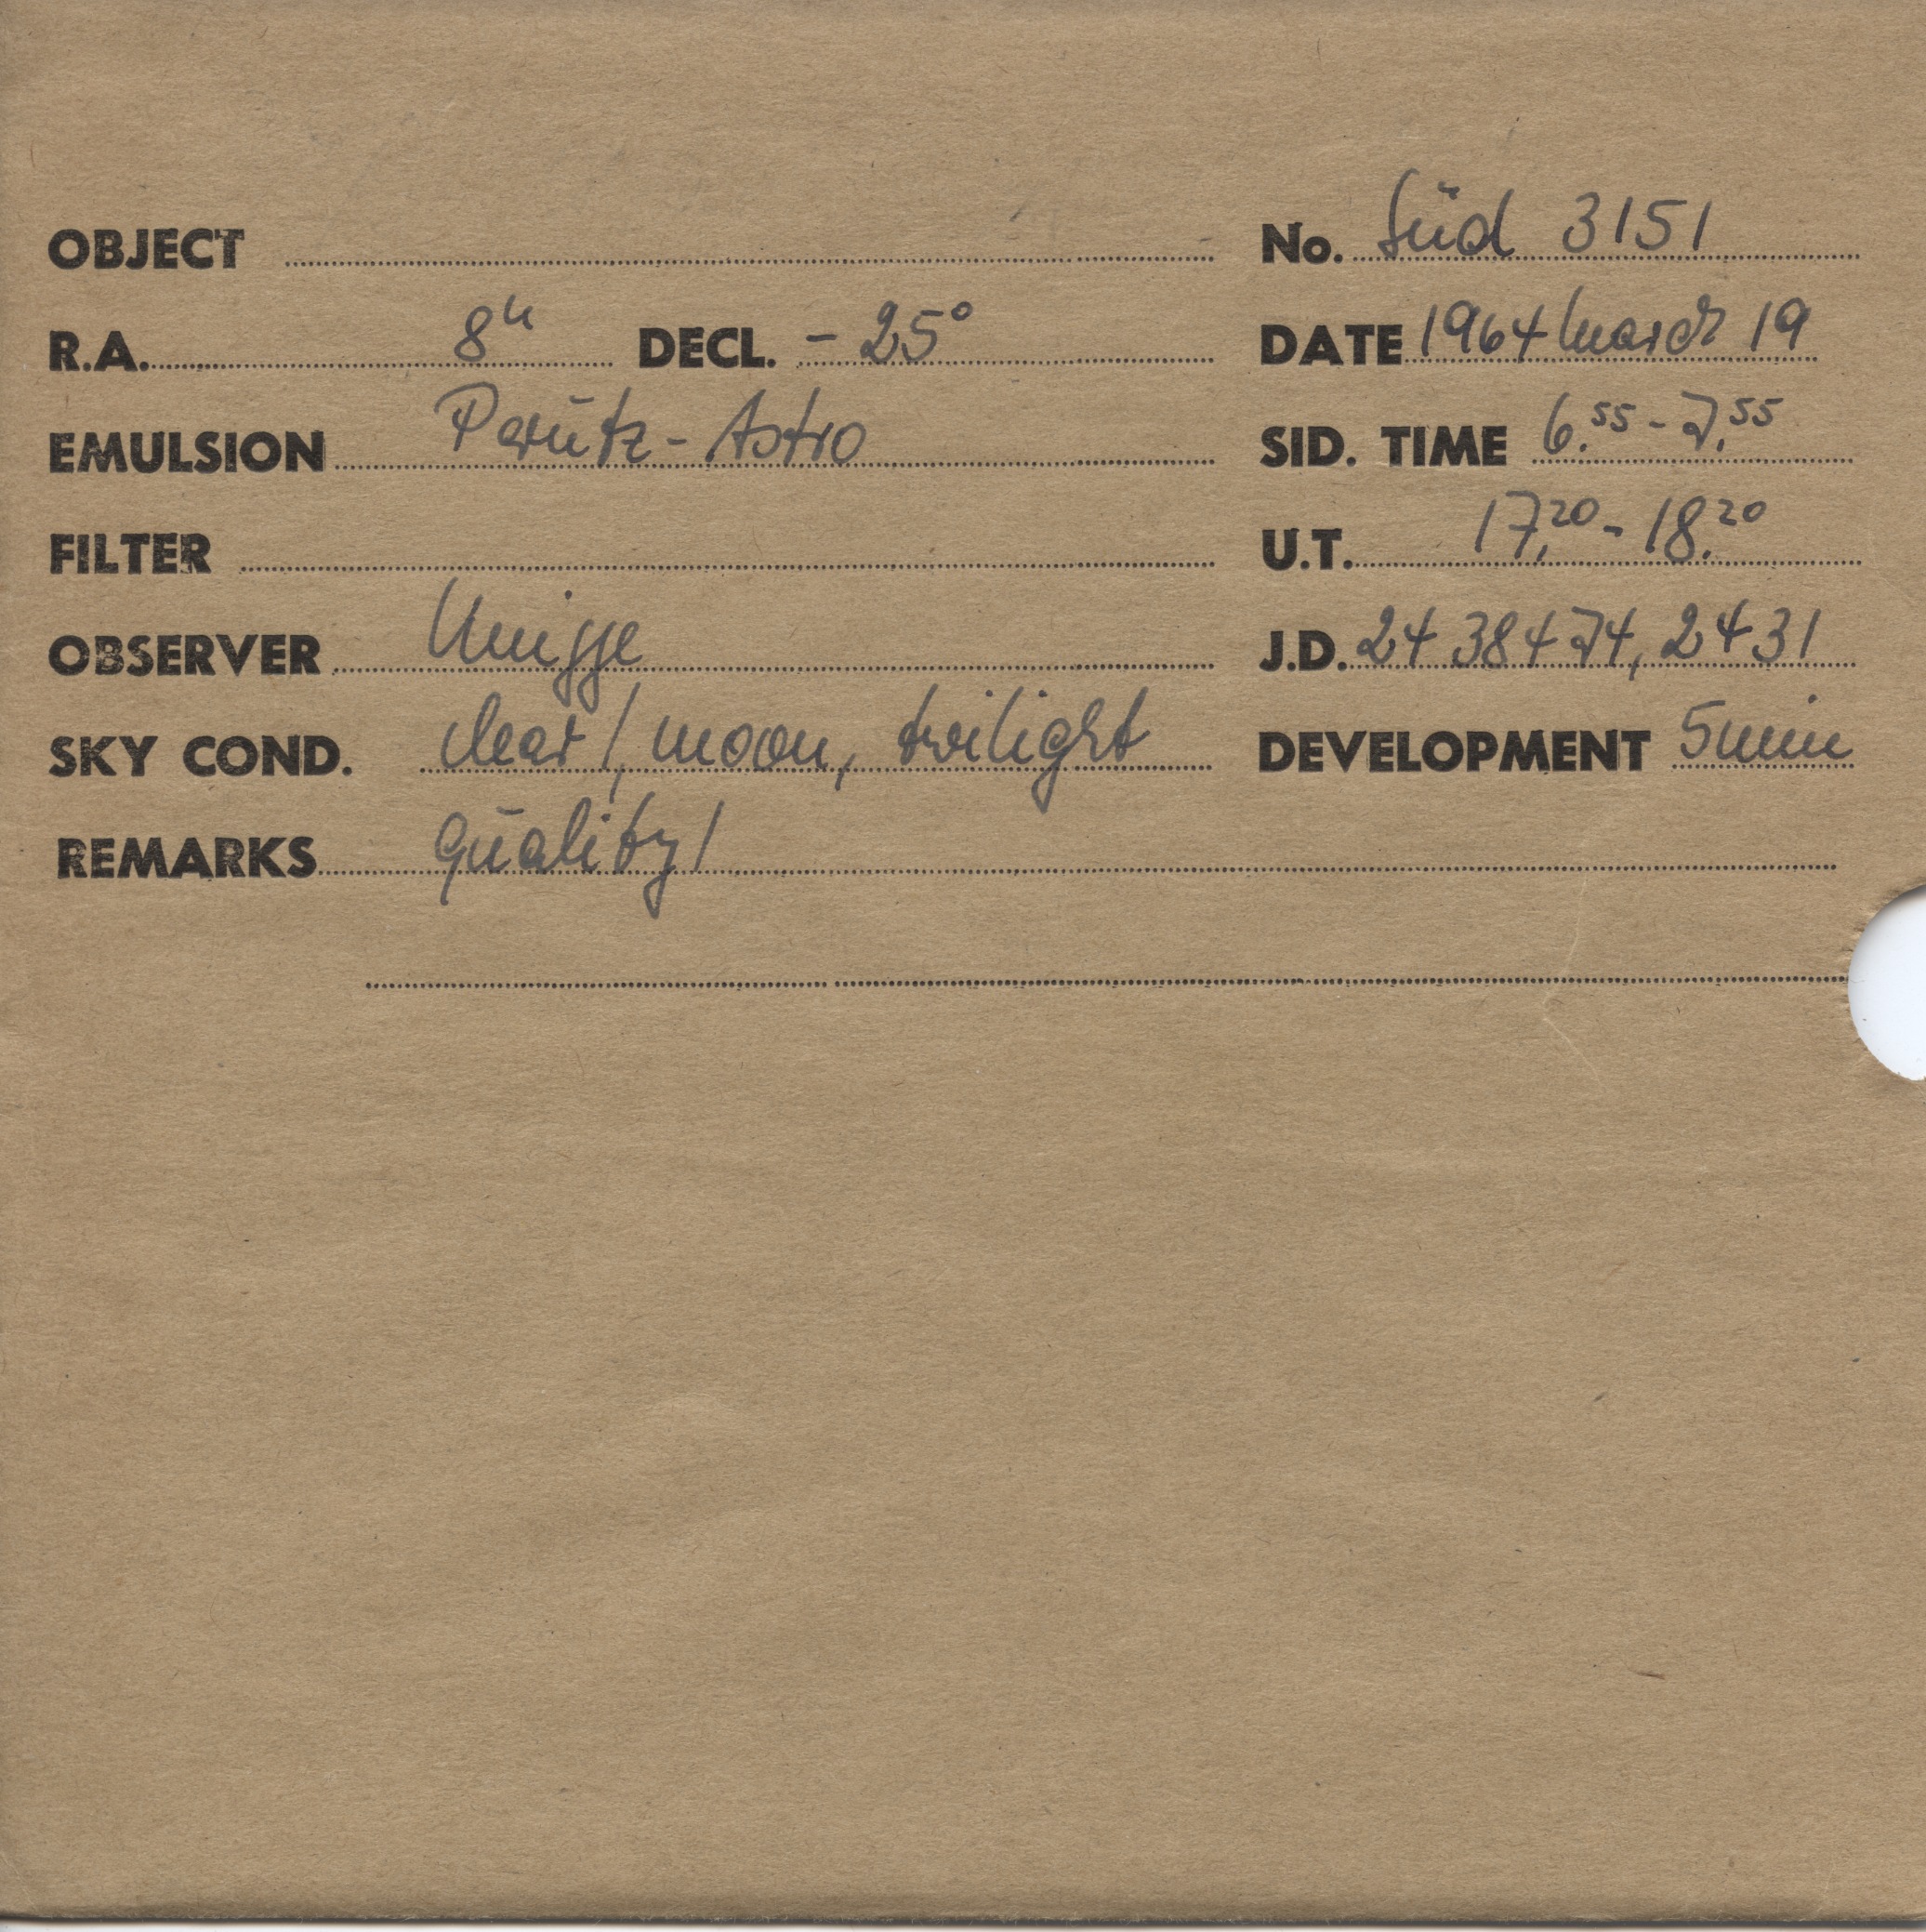 OBJECT No. Süd 3151
R.A. 8h DECL. - 25° DATE 1964 March 19
EMULSION Perutz - Astro SID. TIME 6.55 - 7.55
FILTER U.T. 17.20 - 18.20
OBSERVER J.D. 24 38474, 2431
SKY COND. clear!, moon, twilight DEVELOPMENT 5 min
REMARKS quality!